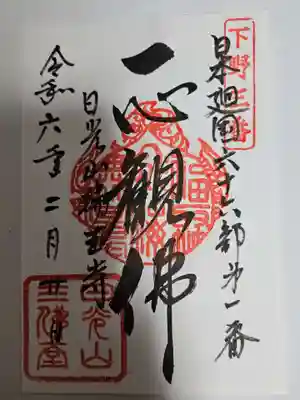 下野三番
日本廻国六十六部第一番
一心観佛
日光山輪王寺
令和六年二月
日光山
三佛堂